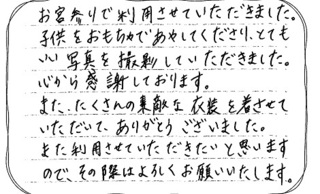 お宮参りで利用させていただきました。
子供をおもちゃであやしてくださり、とても
いい写真を撮影していただきました。
心から感謝しております。
また、たくさんの素敵な衣装を着させて
いただいて、ありがとうございました。
また利用させていただきたいと思います
ので、その際はよろしくお願いいたします。